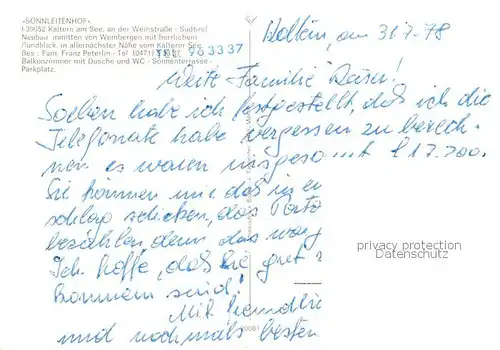 »SONNLEITENHOF«
I-39052 Kaltern am See, an der Weinstraße - Südtirol
Neubau inmitten von Weinbergen mit herrlichem
Rundblick, in allernächster Nähe vom Kalterer See.
Bes.: Fam. Franz Peterlin - Tel. (0471)
TEL 963337
Balkonzimmer mit Dusche und WC - Sonnenterrasse -
Parkplatz.
am 31.7.78
Werte Familie
Soeben habe ich festgestellt, daß ich die
Telefonate habe vergessen zu berech-
nen es waren insgesamt £ 17.700.
Sie können mir das in ein
schlag schicken, das Porto
bezahlen, denn das war
Ich hoffe, daß Sie gut
kommen sind!
Mit freundlic
und nochmals besten
privacy protection
Datenschutz